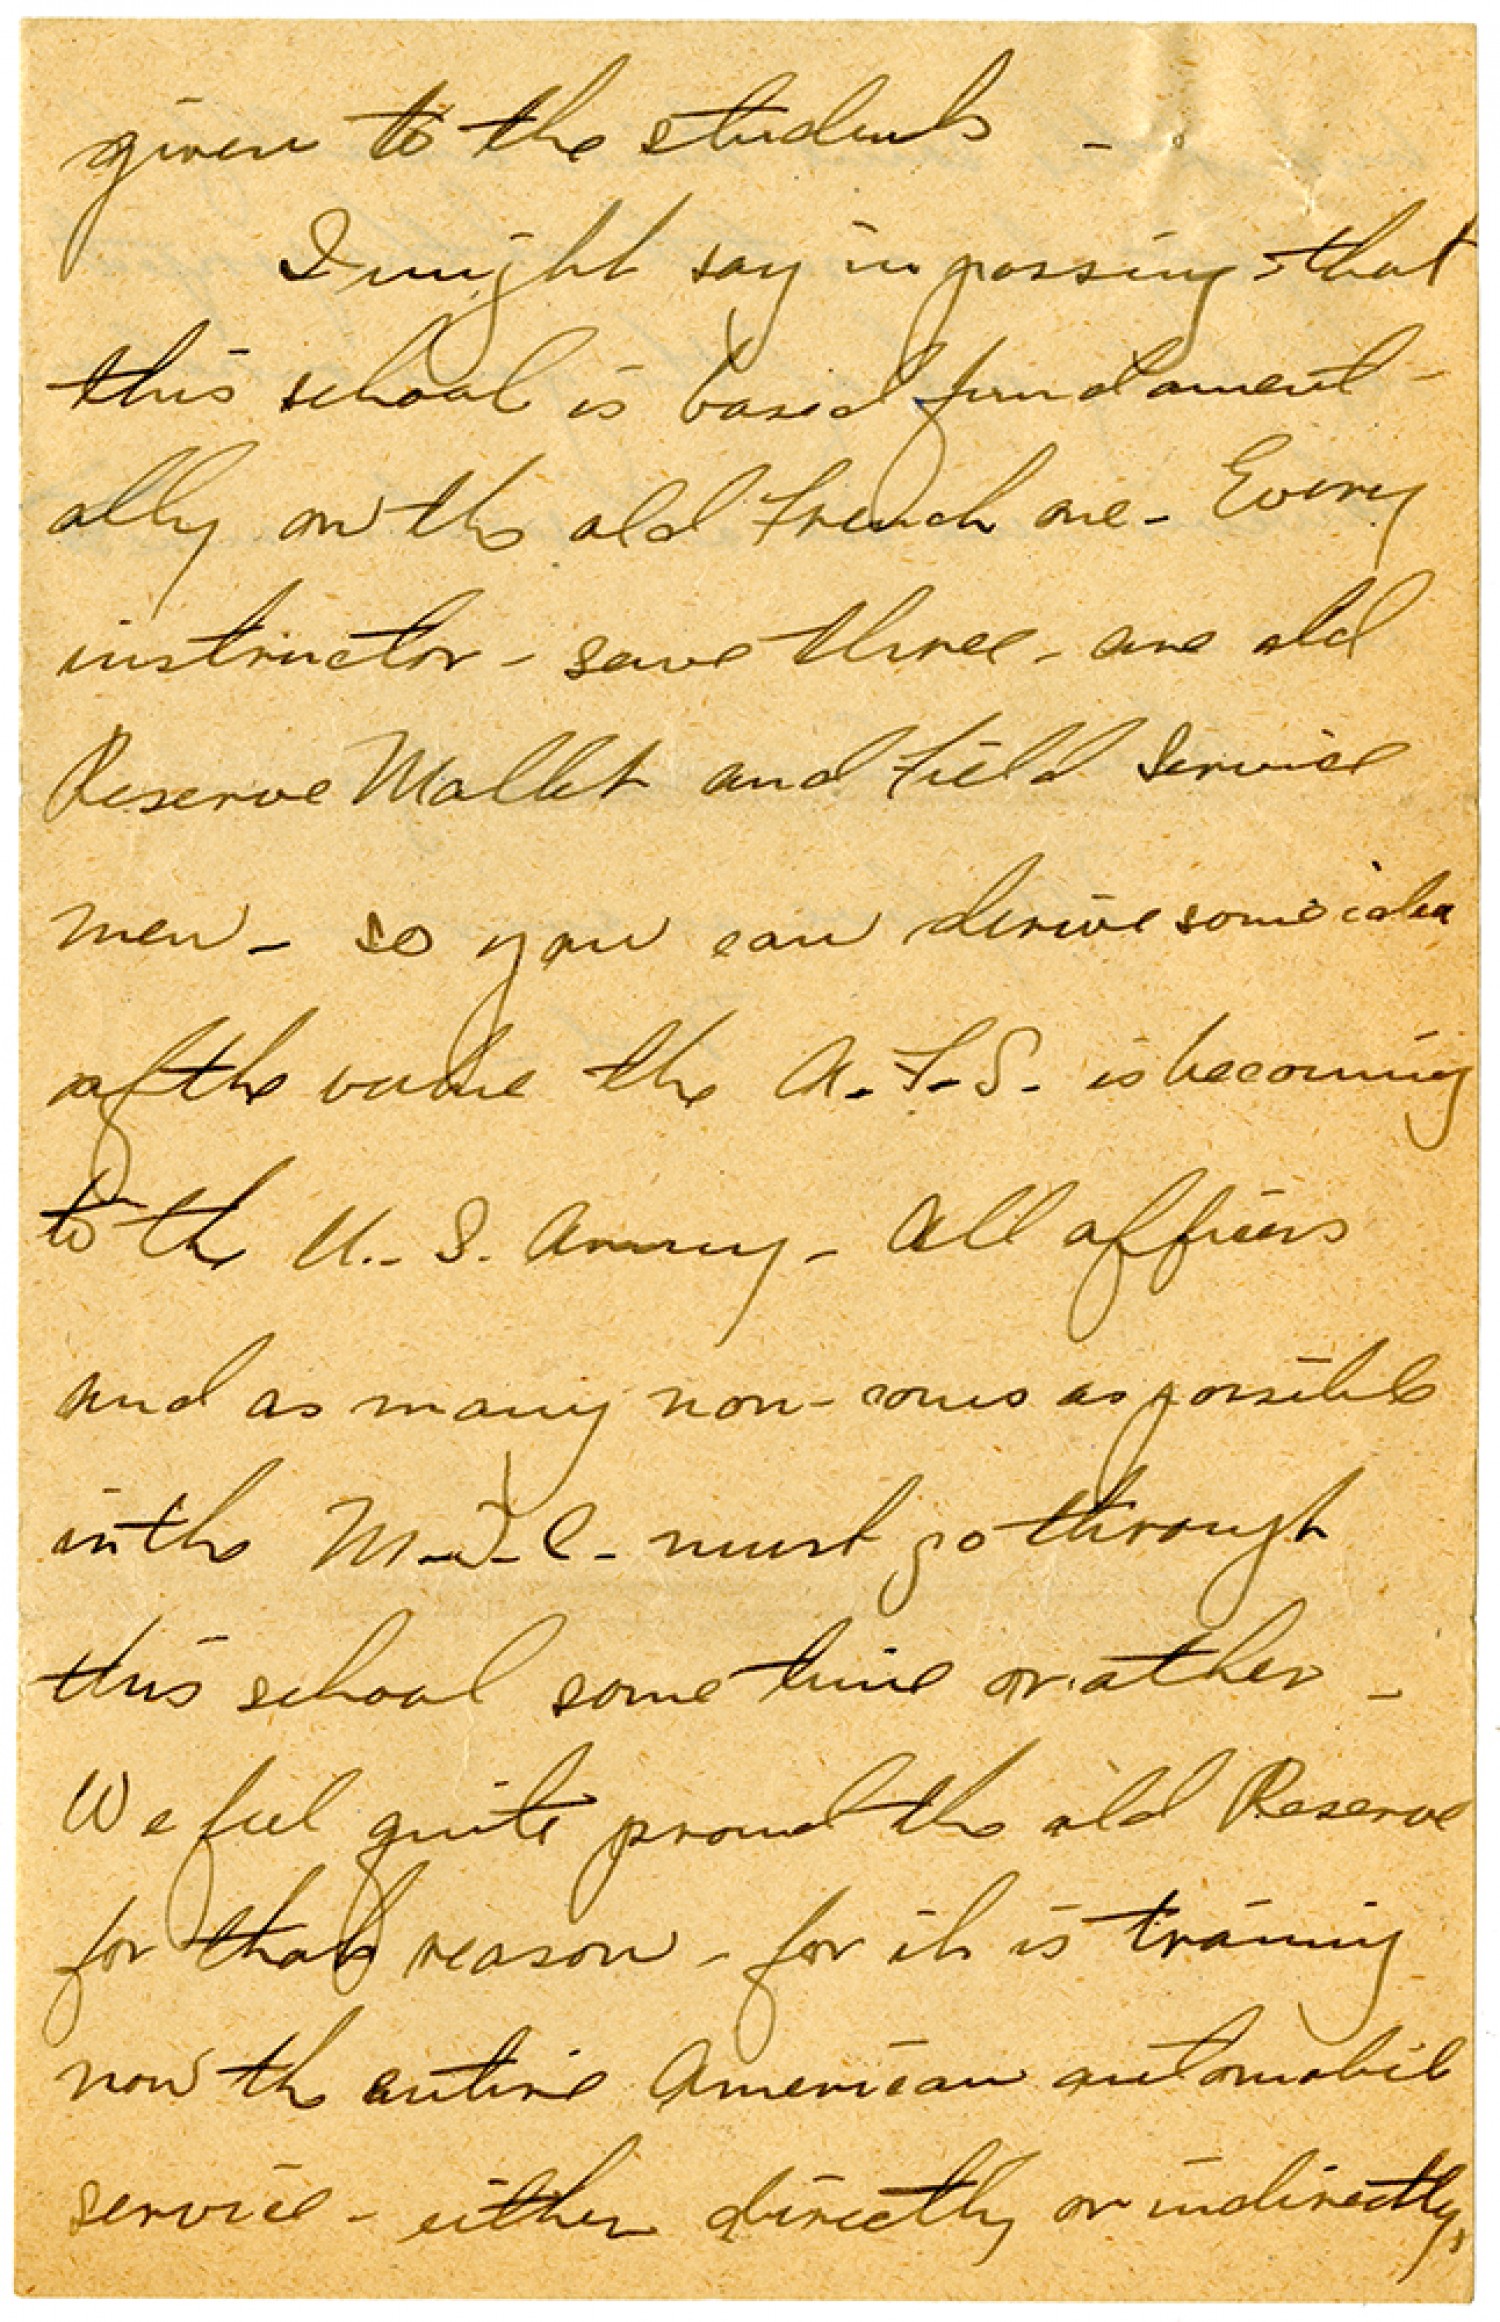 given to the students -
I might say in passing that
this school is based fundament-
ally on the old French one - Every
instructor - save three - are old
Reserve Mallet and Field Service
men - so you can derive some idea
of the value the A.F.S. is becoming
to the U.S. Army - All officers
and as many non-coms as possible
in the M.T.C. must go through
this school some time or other -
We feel quite proud the old Reserve
for that reason - for it is training
now the entire American automobile
service - either directly or indirectly,